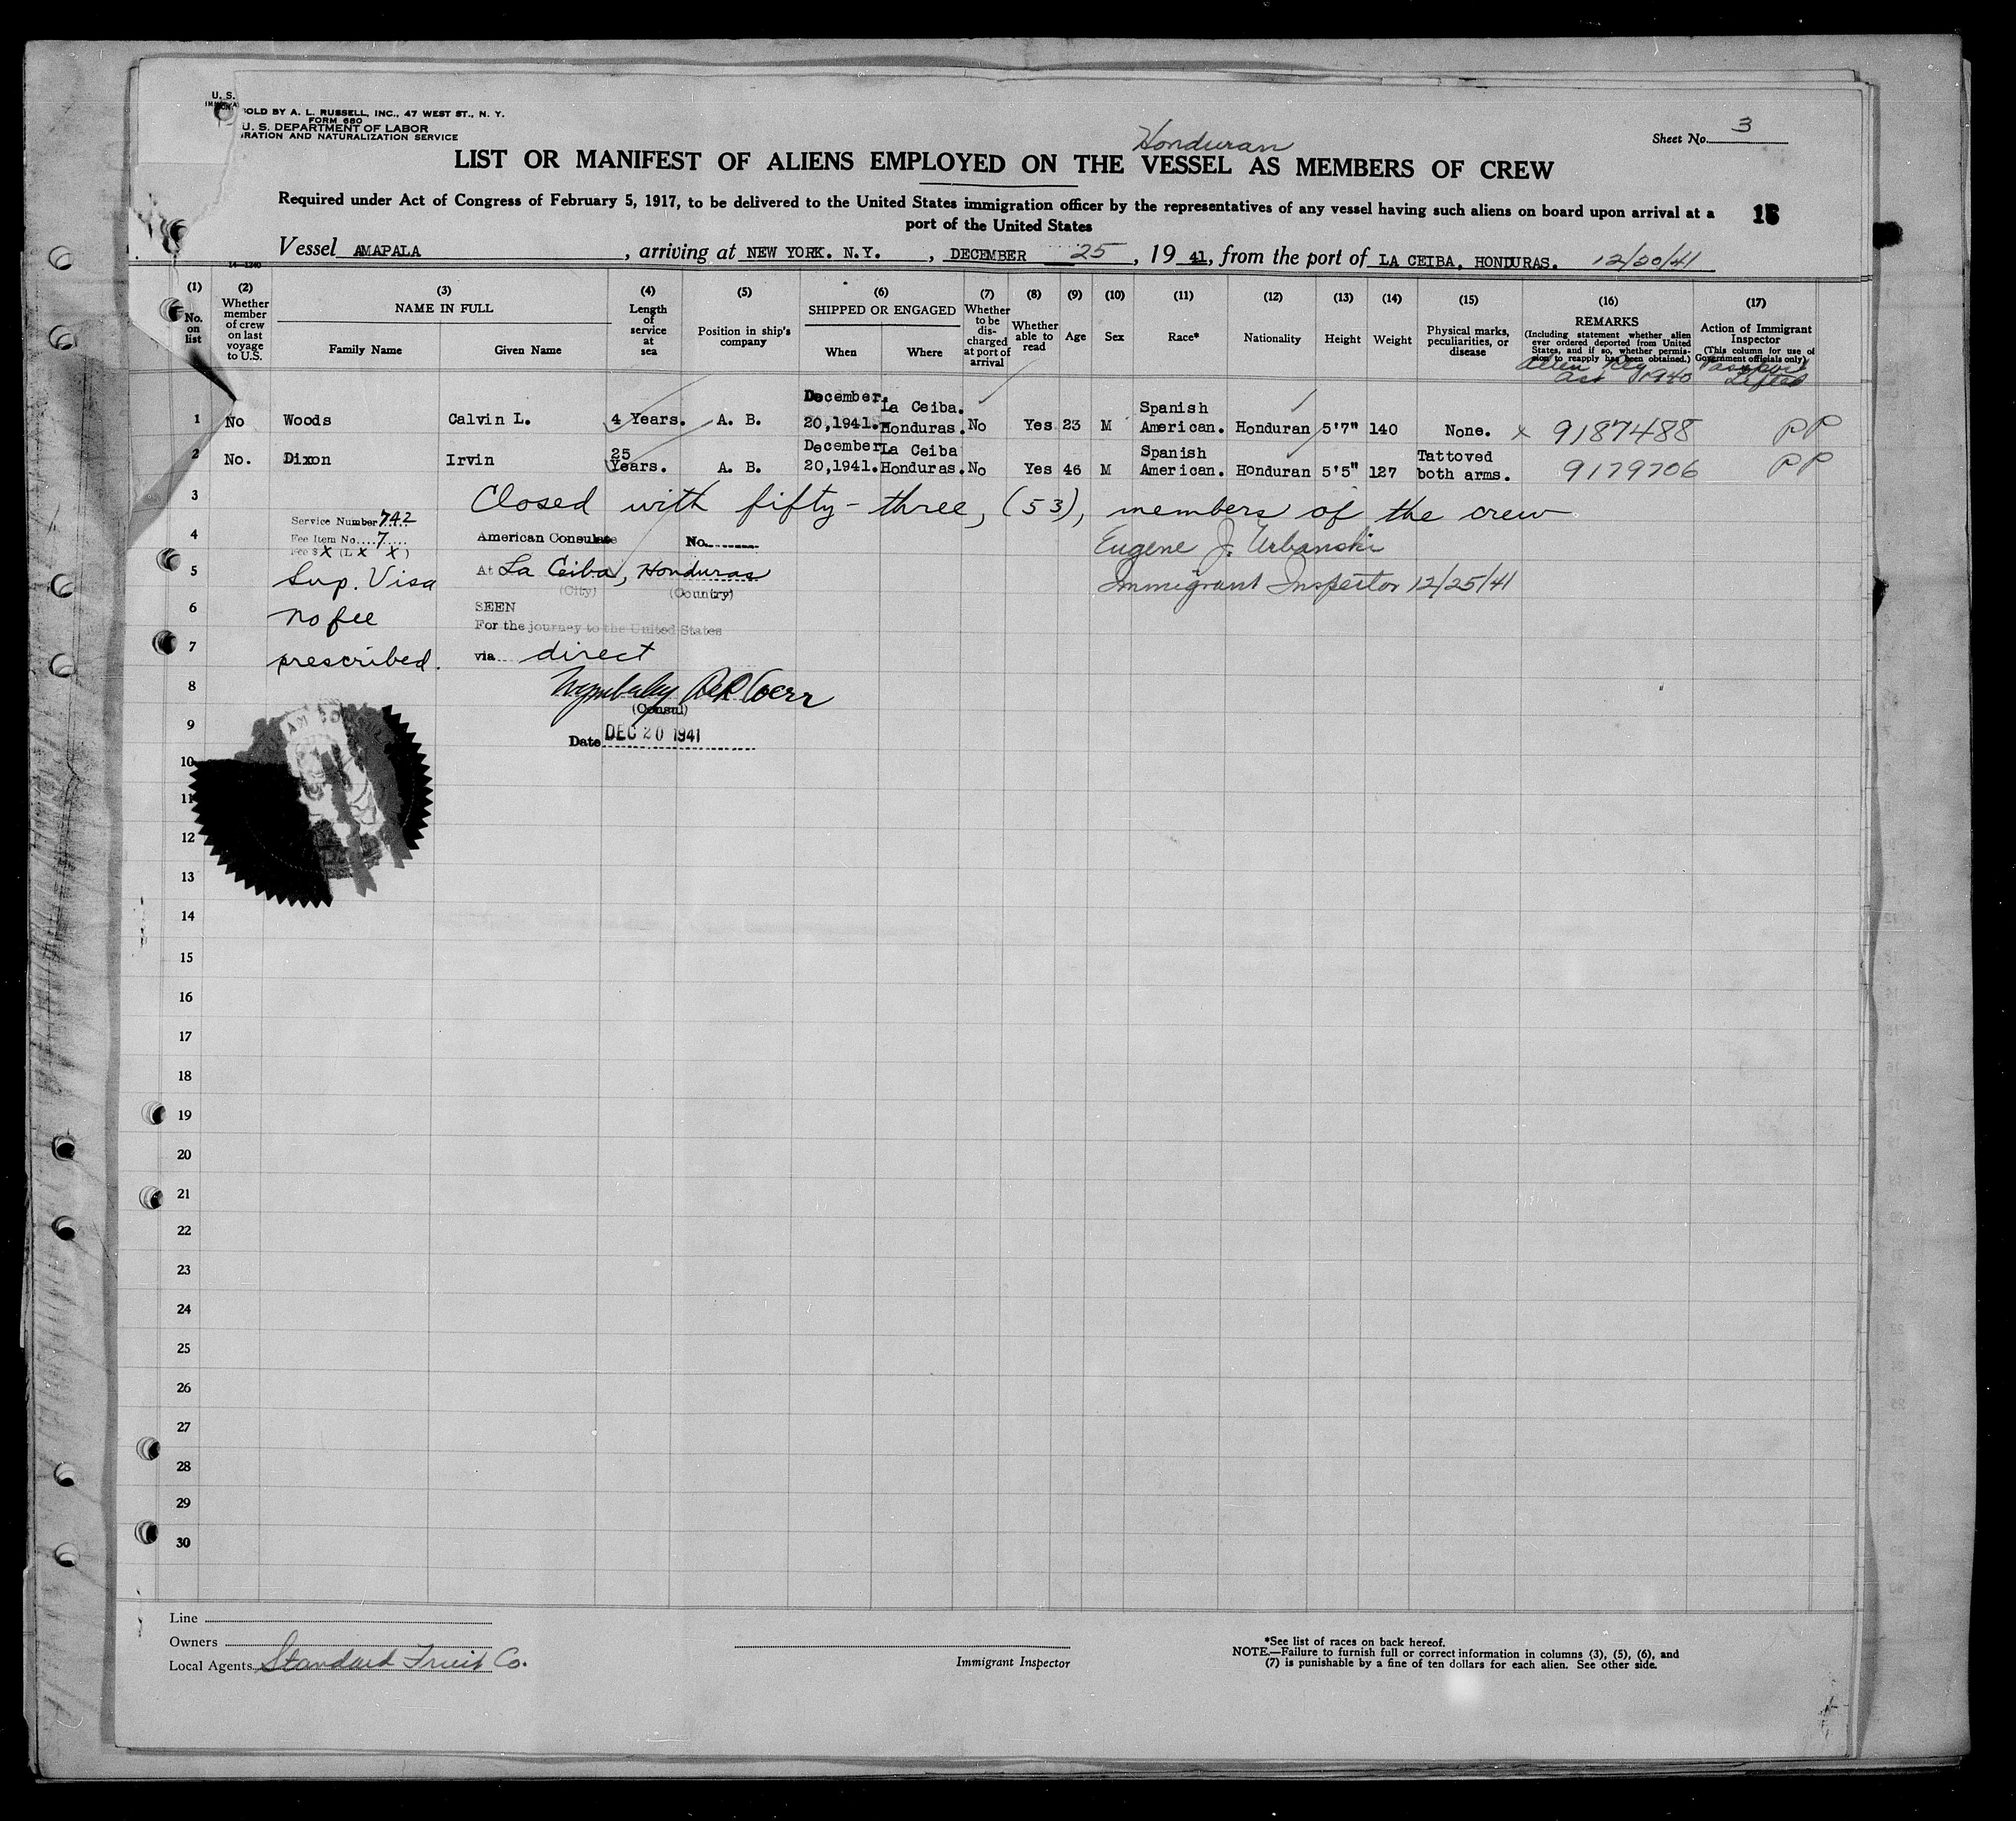 U. S.
SOLD BY A. L. RUSSELL, INC., 47 WEST ST., N. Y.
FORM 680
U. S. DEPARTMENT OF LABOR
IMMIGRATION AND NATURALIZATION SERVICE
Sheet No. 3
Honduran
LIST OR MANIFEST OF ALIENS EMPLOYED ON THE VESSEL AS MEMBERS OF CREW
Required under Act of Congress of February 5, 1917, to be delivered to the United States immigration officer by the representatives of any vessel having such aliens on board upon arrival at a
port of the United States
Vessel AMAPALA , arriving at NEW YORK. N.Y. , DECEMBER 25 , 19 41, from the port of LA CEIBA, HONDURAS. 12/20/41
14—1240
(1) No. on list
(2) Whether member of crew on last voyage to U.S.
(3) NAME IN FULL
Family Name Given Name
(4) Length of service at sea
(5) Position in ship's company
(6) SHIPPED OR ENGAGED
When Where
(7) Whether to be discharged at port of arrival
(8) Whether able to read
(9) Age
(10) Sex
(11) Race*
(12) Nationality
(13) Height
(14) Weight
(15) Physical marks, peculiarities, or disease
(16) REMARKS
(Including statement whether alien ever ordered deported from United States, and if so, whether permission to reapply has been obtained.)
Alien Reg Act 1940
(17) Action of Immigrant Inspector
(This column for use of Government officials only)
Passport Lifted
1 No Woods Calvin L. 4 Years. A. B. December 20,1941. La Ceiba. Honduras. No Yes 23 M Spanish American. Honduran 5'7" 140 None. x 9187488 PP
2 No. Dixon Irvin 25 Years. A. B. December 20,1941. La Ceiba Honduras. No Yes 46 M Spanish American. Honduran 5'5" 127 Tattoved both arms. 9179706 PP
3 Closed with fifty-three, (53), members of the crew
Service Number 742
4 Fee Item No. 7 American Consulate No. Eugene J. Urbanski
Fee $ X (L X X )
5 Sup. Visa At La Ceiba, Honduras Immigrant Inspector 12/25/41
(City) (Country)
6 no fee SEEN
For the journey to the United States
7 prescribed. via direct
8
(Consul)
9 Date DEC 20 1941
10
11
12
13
14
15
16
17
18
19
20
21
22
23
24
25
26
27
28
29
30
Line
Owners
Local Agents Standard Fruit Co.
Immigrant Inspector
*See list of races on back hereof.
NOTE.—Failure to furnish full or correct information in columns (3), (5), (6), and
(7) is punishable by a fine of ten dollars for each alien. See other side.